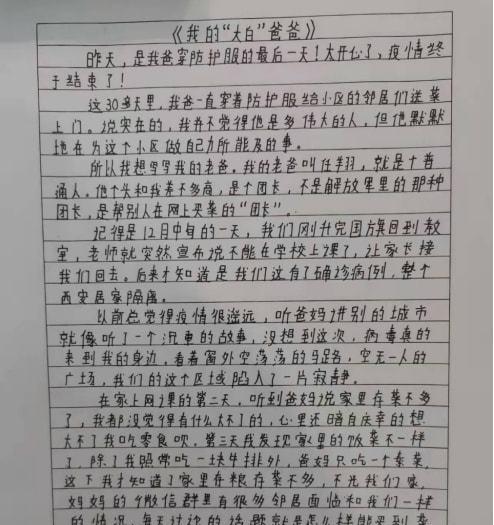 《我的“大白”爸爸》
昨天，是我爸穿防护服的最后一天！太开心了，疫情终
于结束了！
这30多天里，我爸一直穿着防护服给小区的邻居们送菜
上门。说实在的，我并不觉得他是多伟大的人，但他默默
地在为这个小区做自己力所能及的事。
所以我想写写我的老爸。我的老爸叫任羽，就是个普
通人。他个头和我差不多高，是个团长，不是解放军里的那种
团长，是帮别人在网上买菜的“团长”。
记得是12月中旬的一天，我们刚升完国方旗回到教
室，老师就突然宣布说不能在学校上课了，让家长接
我们回去。后来才知道是我们这有了确诊病例，整个
西安居家隔离。
以前总觉得疫情很遥远，听爸妈讲别的城市
就像听了一个沉重的故事，没想到这次，病毒真的
来到我的身边，看着窗外空荡荡的马路，空无一人的
广场，我们的这个区域陷入了一片寂静。
在家上网课的第二天，听到爸妈说家里存菜不多
了，我都没觉得有什么大不了的，心里还暗自庆幸的想
大不了我吃零食呗，第三天我发现家里的饭菜不一样
了，除了我照常吃一块牛排外，爸妈只吃一个素菜，
这下我才知道了家里存粮存菜不多，不光我们家，
妈妈的个微信群里有很多邻居面临和我们一样
的情况，每天讨论的话题就是怎么样能买到菜